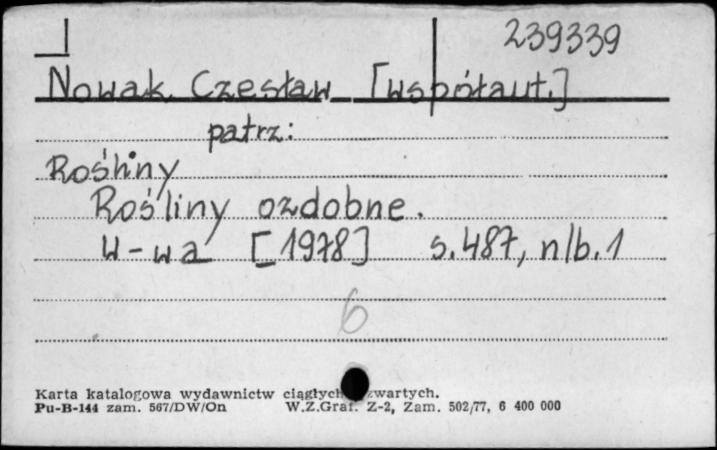 239339
Nowak Czesław [współaut.]
patrz:
Rośliny
Rośliny ozdobne.
W-wa [1978] s. 487, nlb. 1
6
Karta katalogowa wydawnictw ciągłych zwartych.
Pu-B-144 zam. 567/DW/On W.Z.Graf. Z-2, Zam. 502/77, 6 400 000